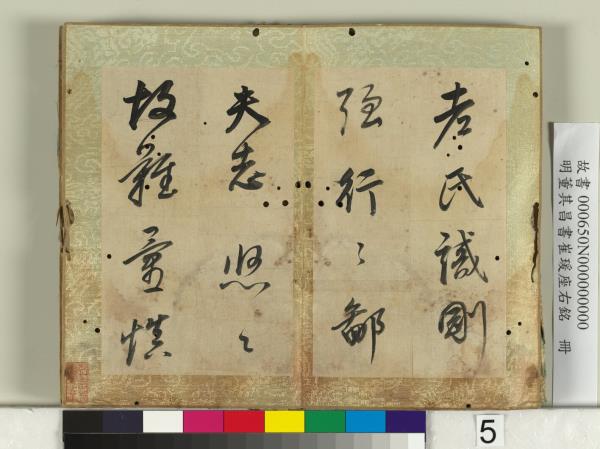 老氏誡剛
強行〻鄙
夫志悠〻
故難量慎
故書 000650N000000000
明董其昌書崔瑗座右銘 冊
5